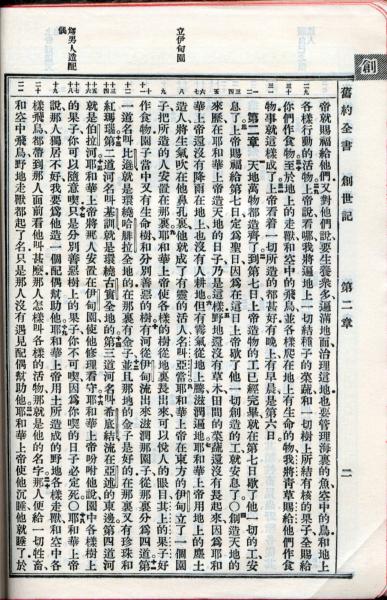 創
舊約全書 創世記 第二章 二
帝就賜福給他們又對他們說要生養衆多遍滿地面治理這地也要管理海裏的魚空中的鳥和地上
各樣行動的活物上帝說看哪我將遍地上一切結種子的菜蔬和一切樹上所結有核的果子全賜給
你們作食物至於地上的走獸和空中的飛鳥並各樣爬在地上有生命的物我將青草賜給他們作食
物事就這樣成了上帝看着一切所造的都甚好有晚上有早晨是第六日
第二章 天地萬物都造齊了到第七日上帝造物的工已經完畢就在第七日歇了他一切的工安
息了上帝賜福給第七日定爲聖日因爲在這日上帝歇了他一切創造的工就安息了〇創造天地的
來歷在耶和華上帝造天地的日子乃是這樣野地還沒有草木田間的菜蔬還沒有長起來因爲耶和
華上帝還沒有降雨在地上也沒有人耕地但有霧氣從地上騰滋潤遍地耶和華上帝用地上的塵土
造人將生氣吹在他鼻孔裏他就成了有靈的活人名叫亞當耶和華上帝在東方的伊甸立了一個園
子把所造的人安置在那裏耶和華上帝使各樣的樹從地裏長出來可以悅人的眼目其上的果子好
作食物園子當中又有生命樹和分別善惡的樹有河從伊甸流出來滋潤那園子從那裏分爲四道第
一道名叫比遜就是環繞哈腓拉全地的在那裏有金子並且那地的金子是好的在那裏又有珍珠和
紅瑪瑙第二道河名叫基訓就是環繞古實全地的第三道河名叫希底結流在亞述的東邊第四道河
就是伯拉河耶和華上帝將那人安置在伊甸園使他修理看守耶和華上帝吩咐他說園中各樣樹上
的果子你可以隨意喫只是分別善惡樹上的果子你不可喫因爲你喫的日子必定死〇耶和華上帝
說那人獨居不好我要爲他造一個配偶幫助他耶和華上帝用土所造成的野地各樣走獸和空中各
樣飛鳥都帶到那人面前看他叫甚麽那人怎樣叫各樣的活物那就是他的名字那人便給一切牲畜
和空中飛鳥野地走獸都起了名只是那人沒有遇見配偶幫助他耶和華上帝使他沉睡他就睡了於
立伊甸園
爲男人造配
偶